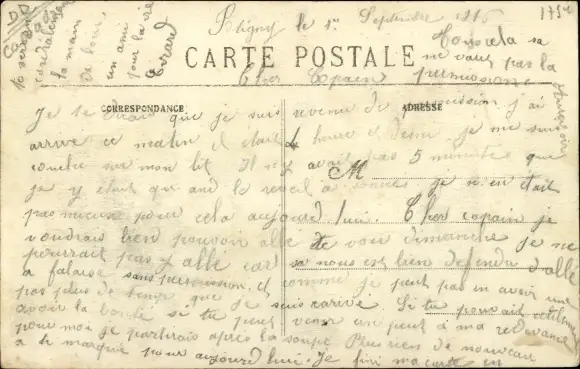 Potigny le 1er Septembre 1916
1754
CARTE POSTALE
CORRESPONDANCE
ADRESSE
Cher Copain
Je te dirais que je suis revenu de permission j'ai
arrivé ce matin il était 4 heure et demi je me suis
couché sur mon lit Il n'y avait pas 5 minutes que
M
je y était quand le reveil a sonné. je n'en était
pas mieux pour cela aujourd'hui. Cher copain je
voudrais bien pouvoir allé te voir dimanche je ne
pourrait pas y allé car sa nous est bien defendu d'allé
a falaise sans permission, et comme je peut pas en avoir une
pas plus de temps que je suis arrivé Si tu pouvait
avoir la bonté si tu peut venir un peut à ma
pour moi je partirais après la soupe Plus rien de nouveau
a te marqué pour aujourd'hui. Je fini ma carte en
te serrant
cordialement
la main
de loin
un ami
pour la vie
Girard
Tout cela sa
ne vaut pas la
permission